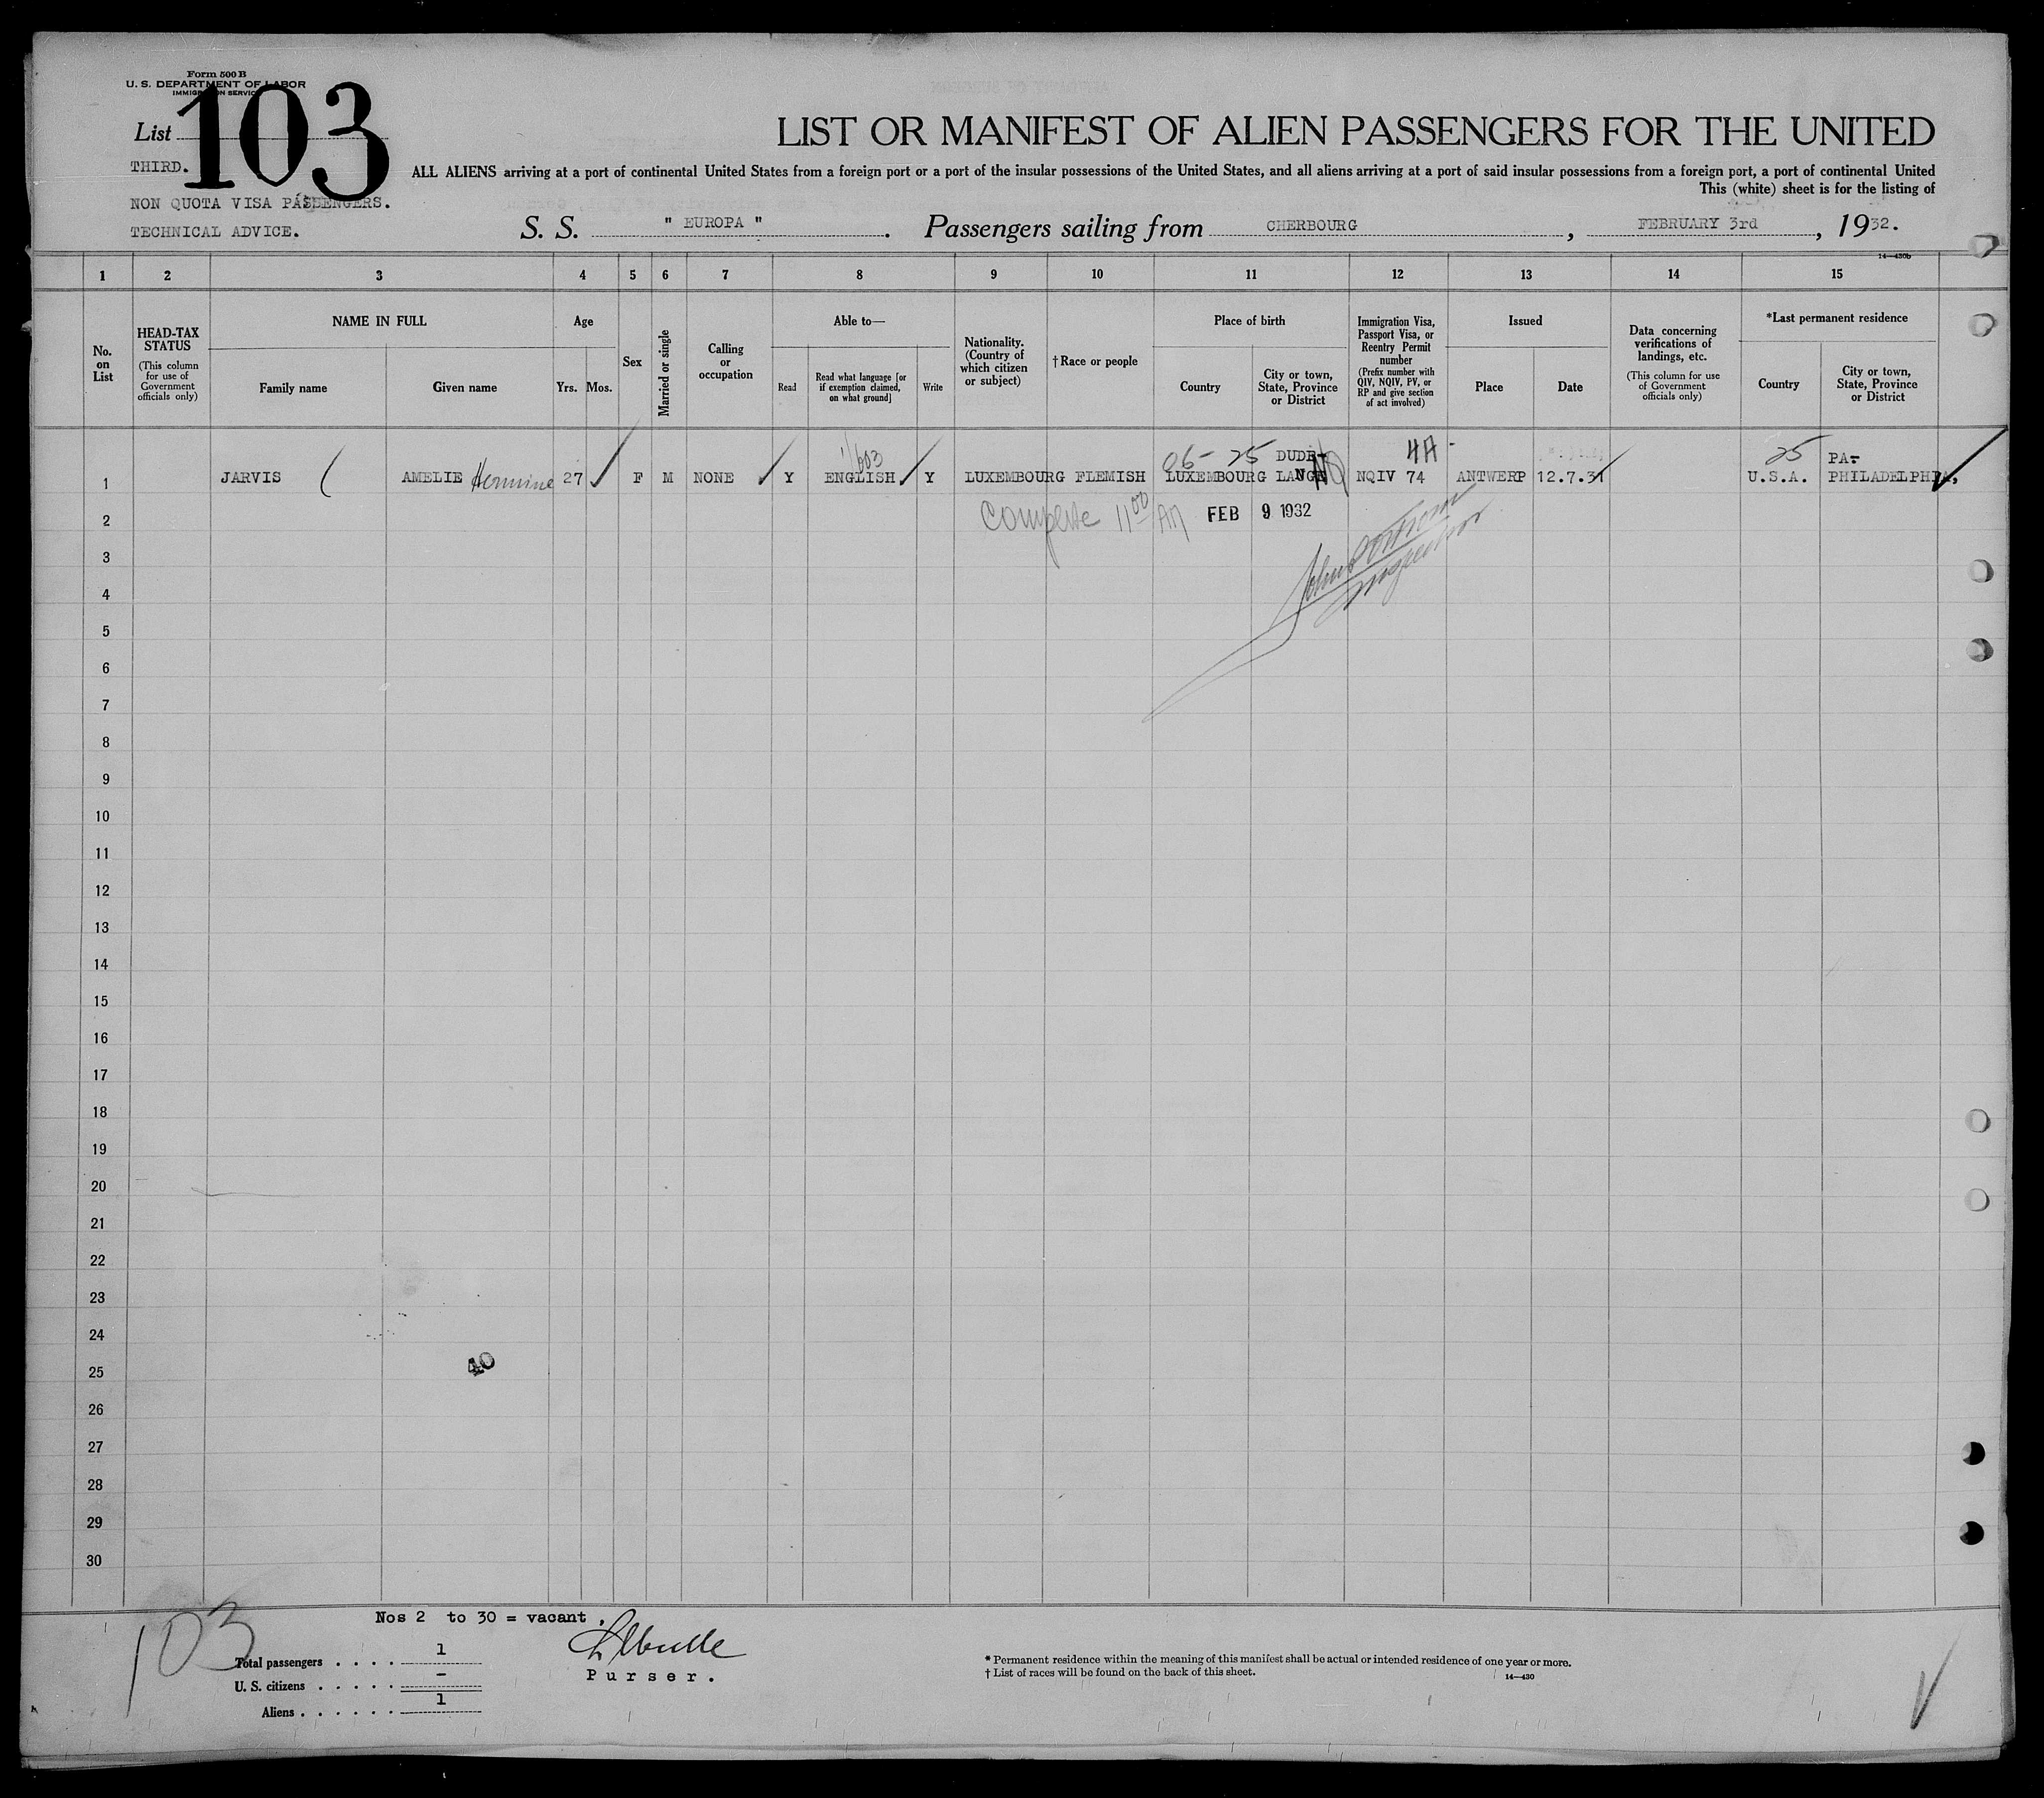 Form 500 B
U. S. DEPARTMENT OF LABOR
IMMIGRATION SERVICE
List 103
THIRD.
NON QUOTA VISA PASSENGERS.
TECHNICAL ADVICE.
LIST OR MANIFEST OF ALIEN PASSENGERS FOR THE UNITED
ALL ALIENS arriving at a port of continental United States from a foreign port or a port of the insular possessions of the United States, and all aliens arriving at a port of said insular possessions from a foreign port, a port of continental United
This (white) sheet is for the listing of
S. S. " EUROPA ". Passengers sailing from CHERBOURG, FEBRUARY 3rd, 1932.
14—430b
1 2 3 4 5 6 7 8 9 10 11 12 13 14 15
No. on List
HEAD-TAX STATUS
(This column for use of Government officials only)
NAME IN FULL
Family name
Given name
Age
Yrs. Mos.
Sex
Married or single
Calling or occupation
Able to—
Read
Read what language [or if exemption claimed, on what ground]
Write
Nationality. (Country of which citizen or subject)
†Race or people
Place of birth
Country
City or town, State, Province or District
Immigration Visa, Passport Visa, or Reentry Permit number
(Prefix number with QIV, NQIV, PV, or RP and give section of act involved)
Issued
Place
Date
Data concerning verifications of landings, etc.
(This column for use of Government officials only)
*Last permanent residence
Country
City or town, State, Province or District
1/603 06- 25 DUDE- 4A- 25 PA-
1 JARVIS AMELIE Hermine 27 F M NONE Y ENGLISH Y LUXEMBOURG FLEMISH LUXEMBOURG LANGE NQIV 74 ANTWERP 12.7.31 U.S.A. PHILADELPHIA,
2 Complete 11 00 AM FEB 9 1932
3
4 Inspector
5
6
7
8
9
10
11
12
13
14
15
16
17
18
19
20
21
22
23
24
25 40
26
27
28
29
30
103
Nos 2 to 30 = vacant,
Total passengers . . . . 1
U. S. citizens . . . . . –
Aliens . . . . . . 1
Purser.
* Permanent residence within the meaning of this manifest shall be actual or intended residence of one year or more.
† List of races will be found on the back of this sheet.
14—430